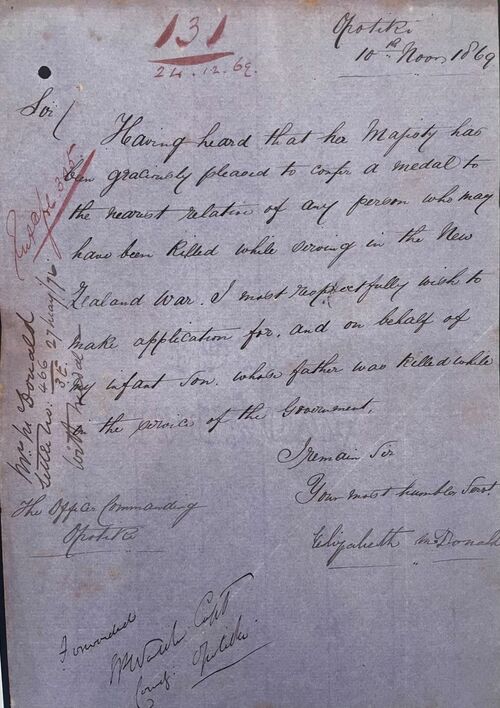 131
24.12.69.
Opotiki
10th Novr 1869
Sir/
Having heard that her Majisty has
been graciously pleased to confer a medal to
the nearest relative of any person who may
have been killed while serving in the New
Zealand War. I most respectfully wish to
make application for, and on behalf of
my infant Son, whose father was killed while
in the service of the Government.
I remain Sir
Your most humble Servt
Elizabeth McDonald
The Officer Commanding
Opotiki
Mrs McDonald
Letter No. 466 27 May/76
with medal
Forwarded
Capt
Comdg. Opotiki